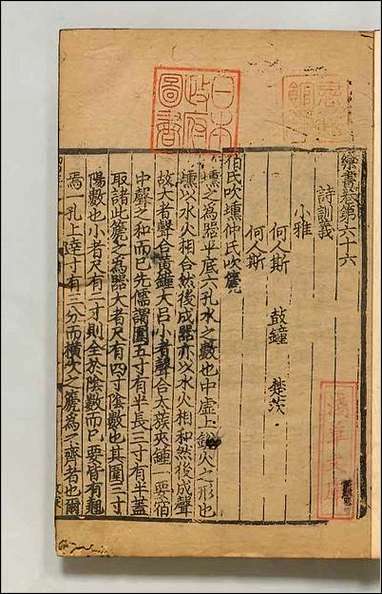 樂書卷第六十六
詩訓義
小雅
何人斯　鼓鐘　楚茨
何人斯
伯氏吹壎仲氏吹篪
壎之爲器平底六孔水之數也中虛上銳火之形也
壎以水火相合然後成器亦以水火相和然後成聲
故大者聲合黃鍾大呂小者聲合太蔟夾鍾一要宿
中聲之和而已先儒謂圍五寸有半長三寸有半蓋
取諸此篪之爲器大者尺有四寸陰數也其圍三寸
陽數也小者尺有二寸則全於陰數而已要皆有翹
焉一孔上達寸有三分而橫吹之篪爲一齊者也爾
日本
政府
圖書
淺草文庫